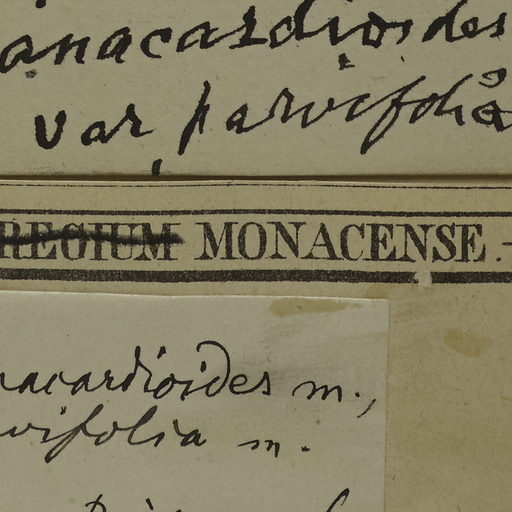 anacardioides
var. parvifolia
REGIUM MONACENSE.
nacardioides m.,
vifolia m.